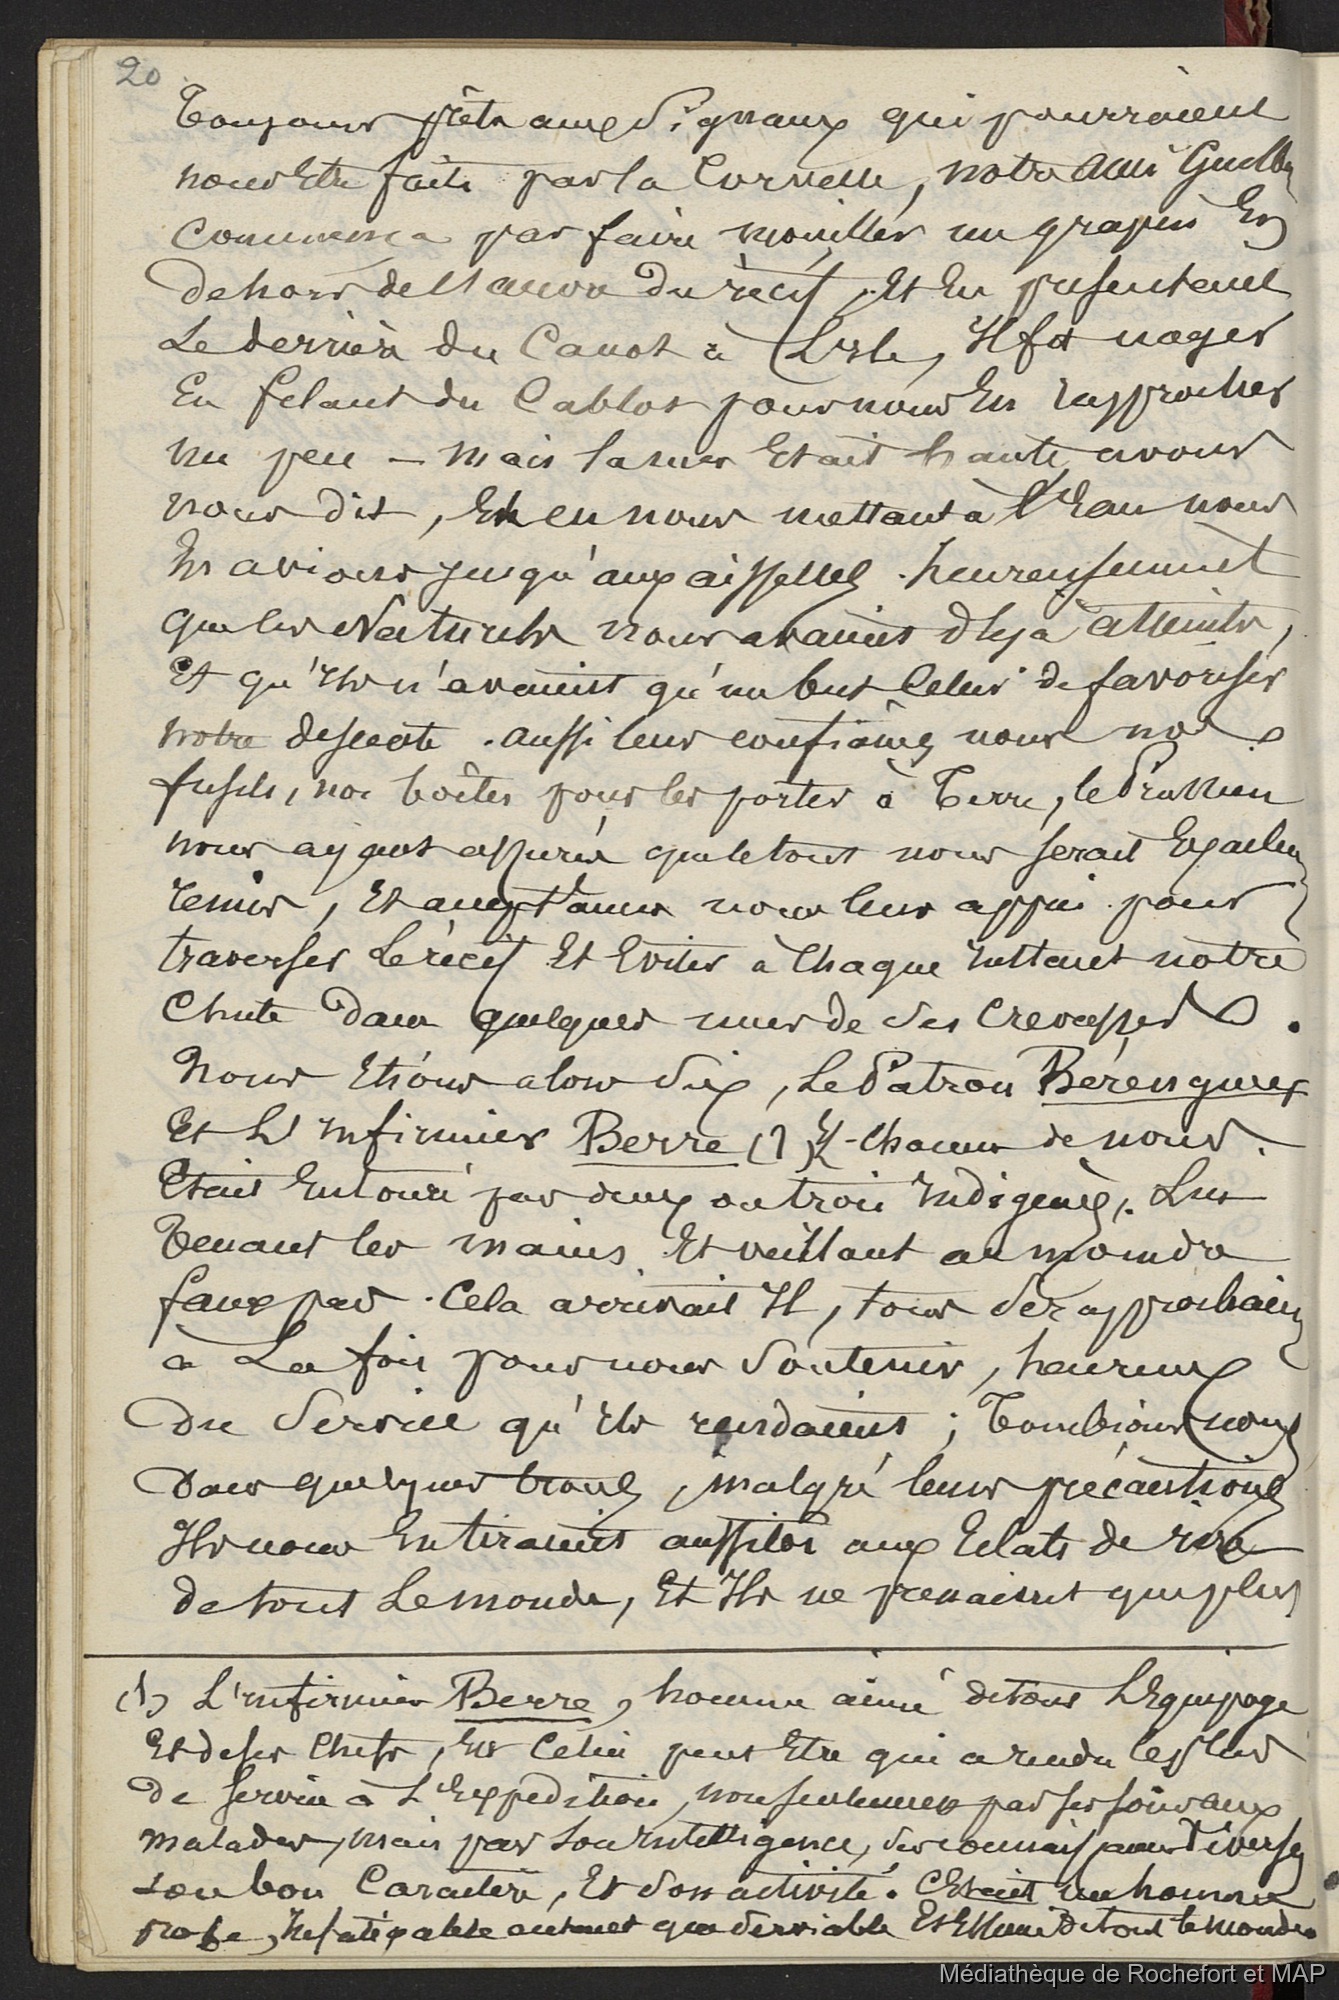 20
Toujours prêts aux Signaux qui pourraient
nous Etre faits par la Corvette, notre ami
commença par faire mouiller un grapin En
dehors de l'accore du récif, Et En présentant
Le derrière du Canot à L'Isle, Il fit nager
En filant du Cablot pour nous En rapprocher
un peu — mais la mer Etait haute, avons
nous dit, Et en nous mettant à l'Eau nous
En avions jusqu'aux aisselles. heureusement
que les Naturels nous avaient déja atteints,
Et qu'Ils n'avaient qu'un but Celui de favoriser
notre descente. aussi leur confiames nous nos
fusils, nos boîtes pour les porter à Terre, le Prussien
nous ayant assurés que le tout nous serait Exactem
remis, Et acceptames nous leur appui pour
traverser Le récif Et Eviter à Chaque Instant notre
Chute dans quelques unes de Ses Crevasses.
Nous Etions alors Six, Le Patron Bérenguier
Et L'Infirmier Berre (1) Chacun de nous
Etait Entouré par deux ou trois Indigènes, Lui
Tenant les mains Et veillant au moindre
faux pas. Cela arrivait Il, tous Se rapprochaient
à La fois pour nous Soutenir, heureux
Du Service qu'Ils rendaient ; Tombions nous
Dans quelques trous, malgré leurs précautions
Ils nous En tiraient aussitôt aux Eclats de rire
de tout Le monde, Et Ils ne prenaient que plus
(1) L'Infirmier Berre, homme aimé de tout L'Equipage
Et de ses Chefs, Est Celui peut Etre qui a rendu le plus
De service à L'Expedition, non seulement par ses soins aux
malades, mais par Son Intelligence, Ses connaissances Diverses
Son bon Caractère, Et Son activité. C'Etait un homme
probe, Infatigable autant que Serviable Et Estimé de tout le monde.
Médiathèque de Rochefort et MAP